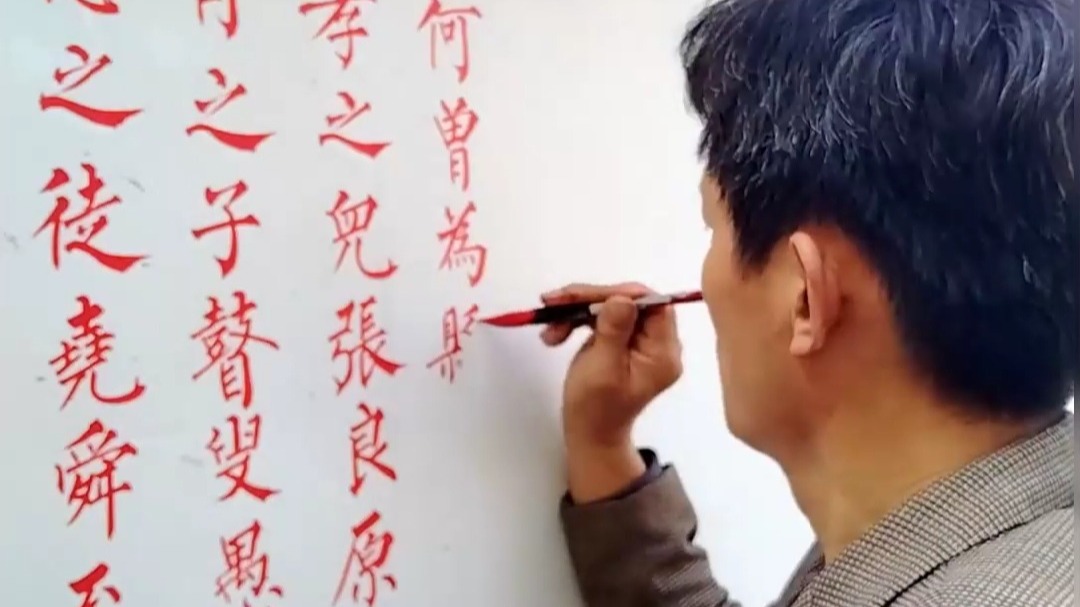 之徒堯舜
之子瞽叟愚
孝之兒張良原
何曾為